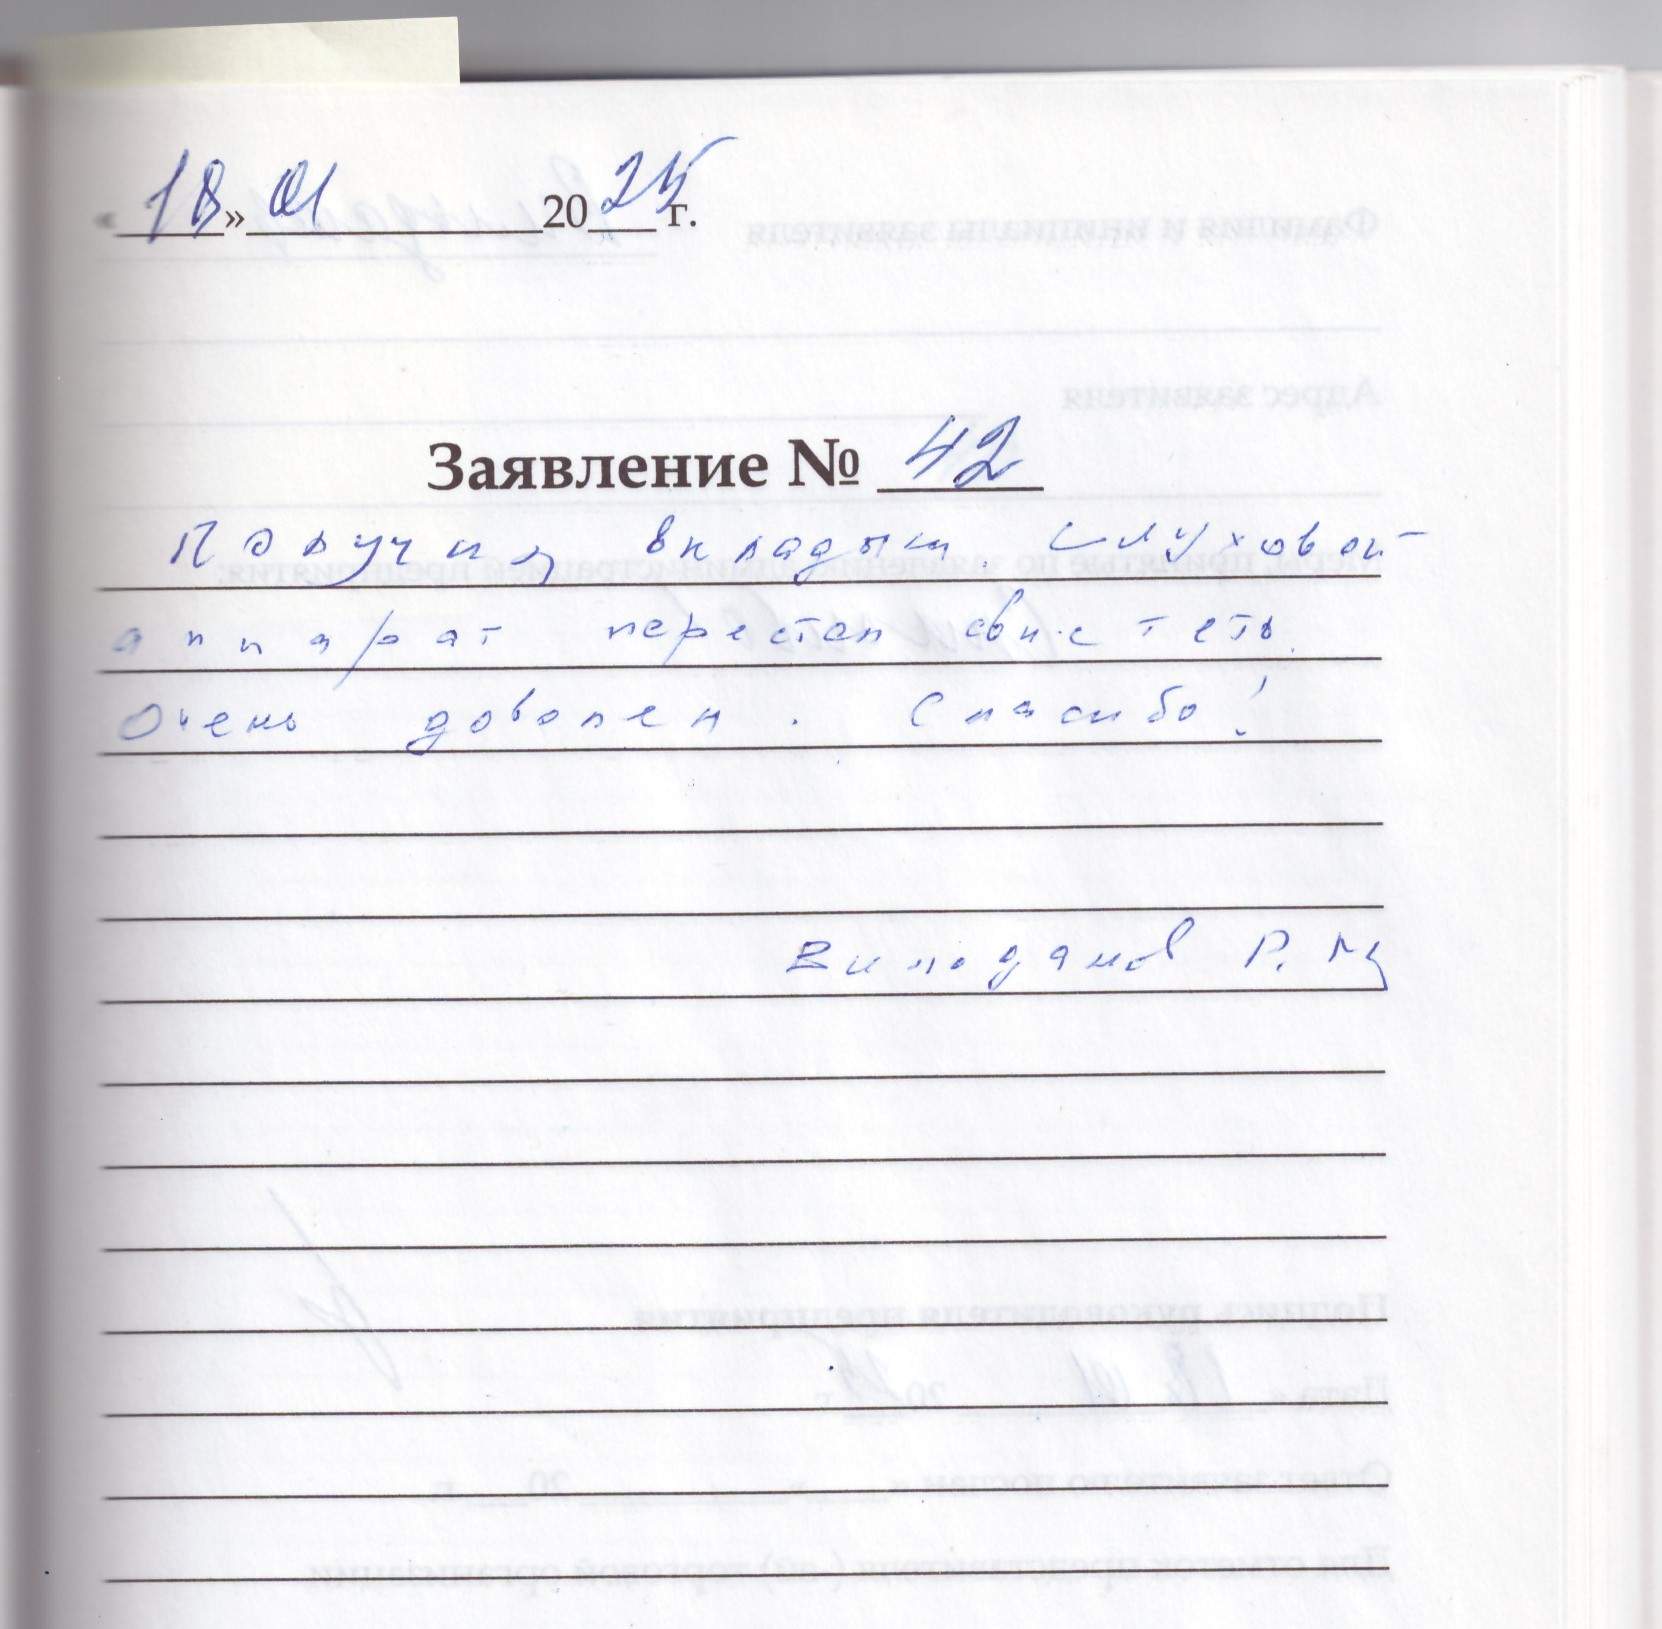 «18» 01 2025 г.
Заявление № 42
Получил вкладыш. Слуховой
аппарат перестал свистеть.
Очень доволен. Спасибо!
Р. М